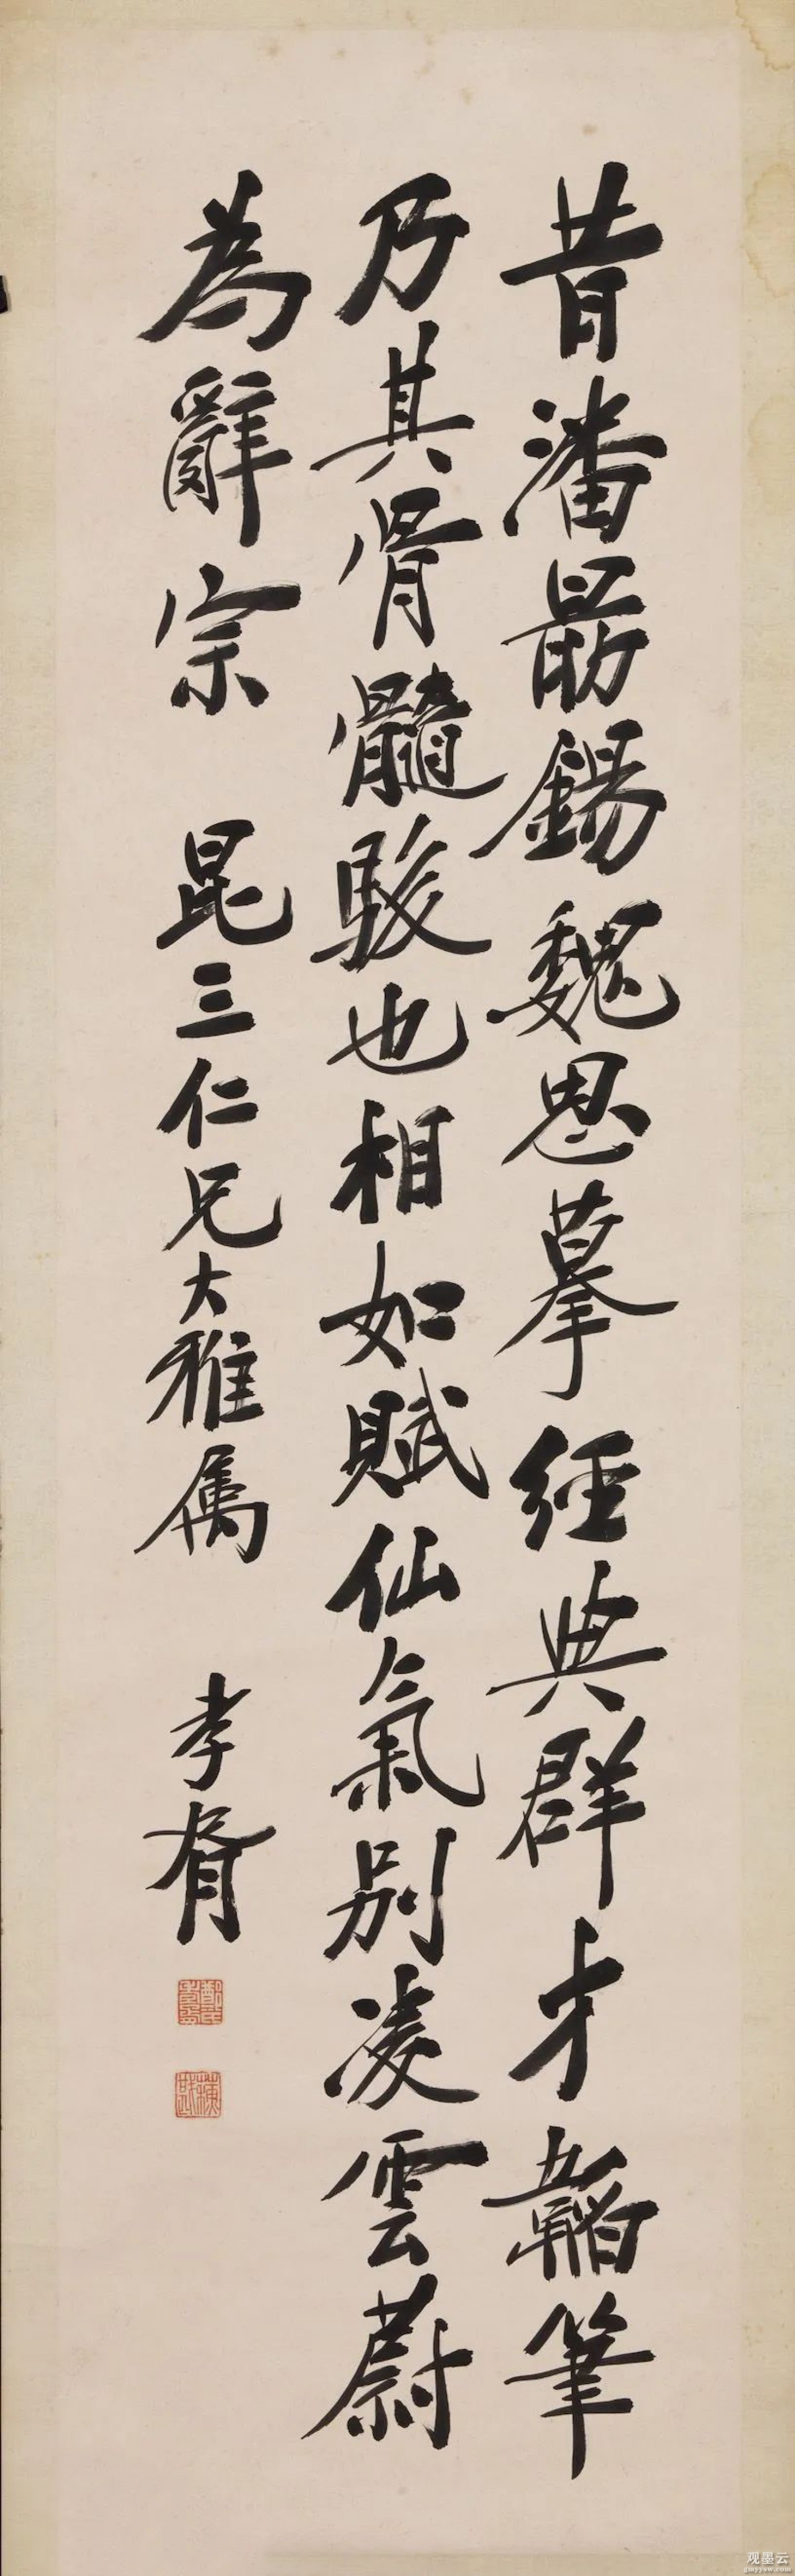 昔潘勗錫魏思摹經典群才韜筆
乃其骨髓駿也相如賦仙氣別凌雲蔚
為辭宗 昆三仁兄大雅属 孝胥
观墨云
gmyysw.com